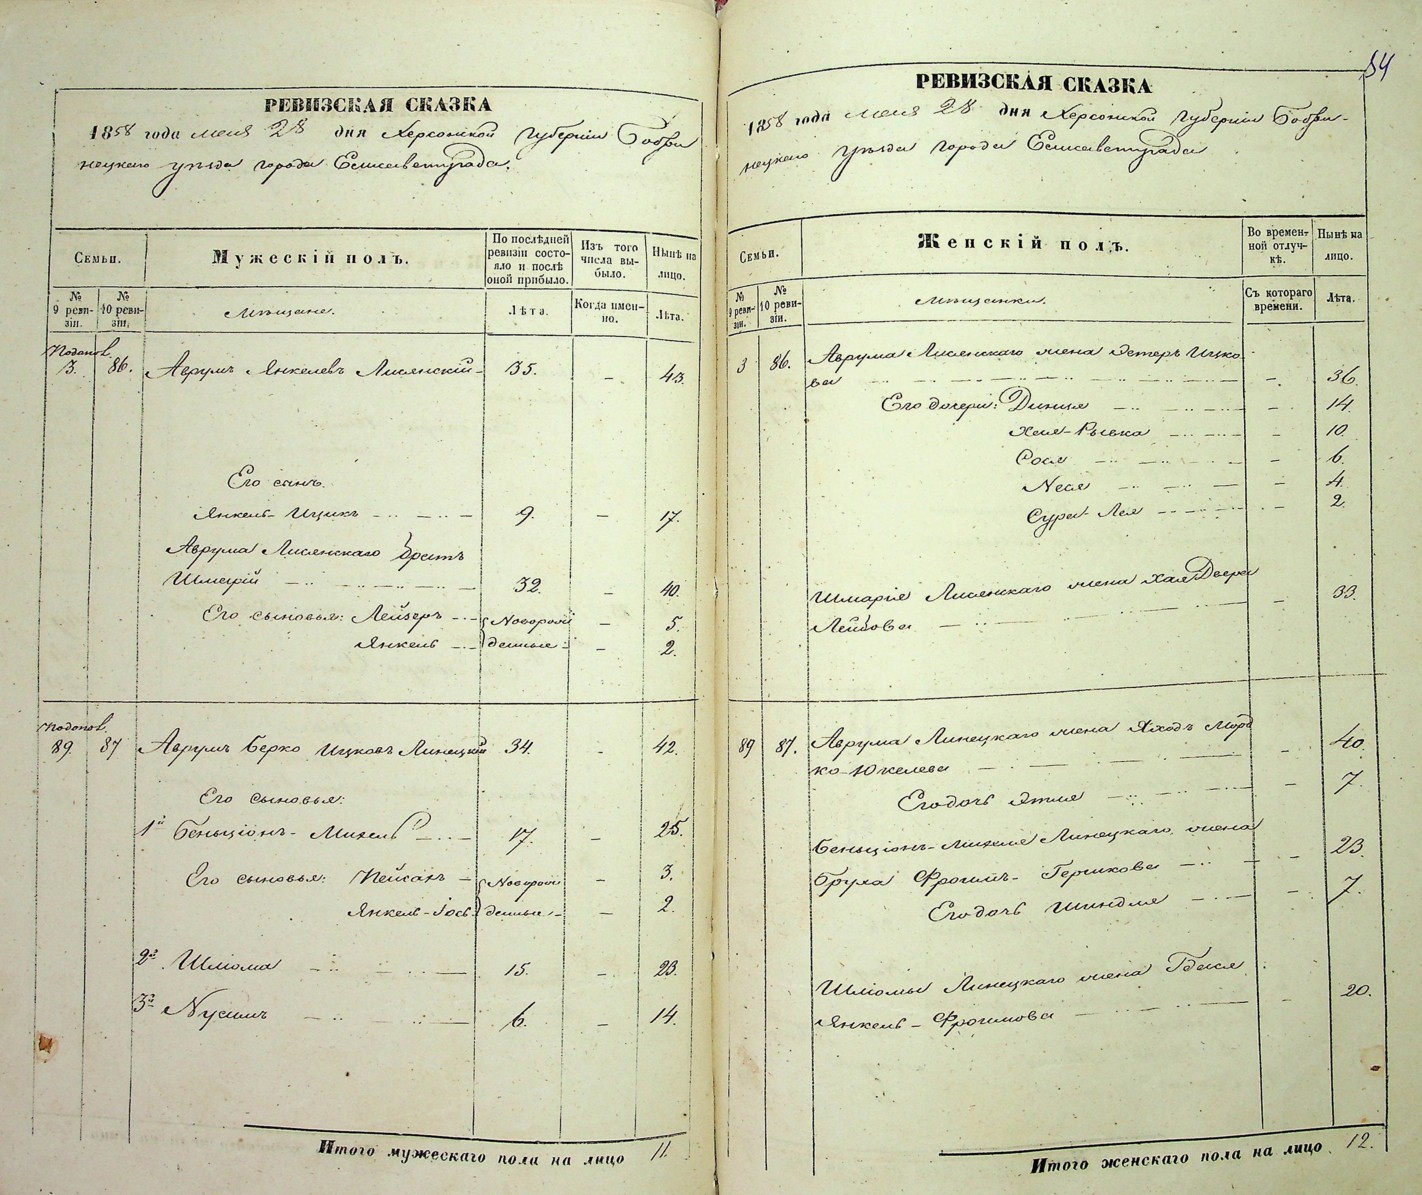 РЕВИЗСКАЯ СКАЗКА
1858 года мая 28 дня Херсонской Губернии Бобри
нецкаго уѣзда города Елисаветграда.
Семьи.
Мужескій полъ.
По послѣдней ревизіи состояло и послѣ оной прибыло.
Изъ того числа выбыло.
Нынѣ на лицо.
№ 9 ревизіи.
№ 10 ревизіи.
Мѣщане.
Лѣта.
Когда именно.
Лѣта.
3. 86. Аврумъ Янкелевъ Лисянскій 35. — 43.
Его сынъ
Янкель-Ицикъ 9. — 17.
Аврума Лисянскаго братъ
Шмарій 32. — 40.
Его сыновья: Лейзеръ Новорож — 5.
Янкель денные — 2.
89 87 Аврумъ Берко Ицковъ Линецкій 34. — 42.
Его сыновья:
1й Беньціонъ-Михель 17. — 25.
Его сыновья: Пейсахъ Новорож — 3.
Янкель-Іось денные — 2.
2й Шліома 15. — 23.
3й Нусимъ 6. — 14.
Итого мужескаго пола на лицо 11.
РЕВИЗСКАЯ СКАЗКА
1858 года мая 28 дня Херсонской Губерніи Бобри-
нецкаго уѣзда города Елисаветграда
Семьи.
Женскій полъ.
Во временной отлучкѣ.
Нынѣ на лицо.
№ 9 ревизіи.
№ 10 ревизіи.
Мѣщанки.
Съ котораго времени.
Лѣта.
3 86. Аврума Лисянскаго жена Эстеръ Ицко
ва — 36.
Его дочери: Динця — 14.
Хая-Рывка — 10
Сося — 6.
Неся — 4.
Сура-Лея — 2.
Шмарія Лисянскаго жена Хая Двера
Лейбова — 33.
89 87. Аврума Линецкаго жена Яходъ Морд
ко-Юкелева — 40.
Его дочь Этля — 7.
Беньціонъ-Михеля Линецкаго жена
Бруха Фроимъ-Гершкова — 23.
Его дочь Шиндля — 7.
Шліомы Линецкаго жена
Янкель-Фроимова — 20.
Итого женскаго пола на лицо 12.